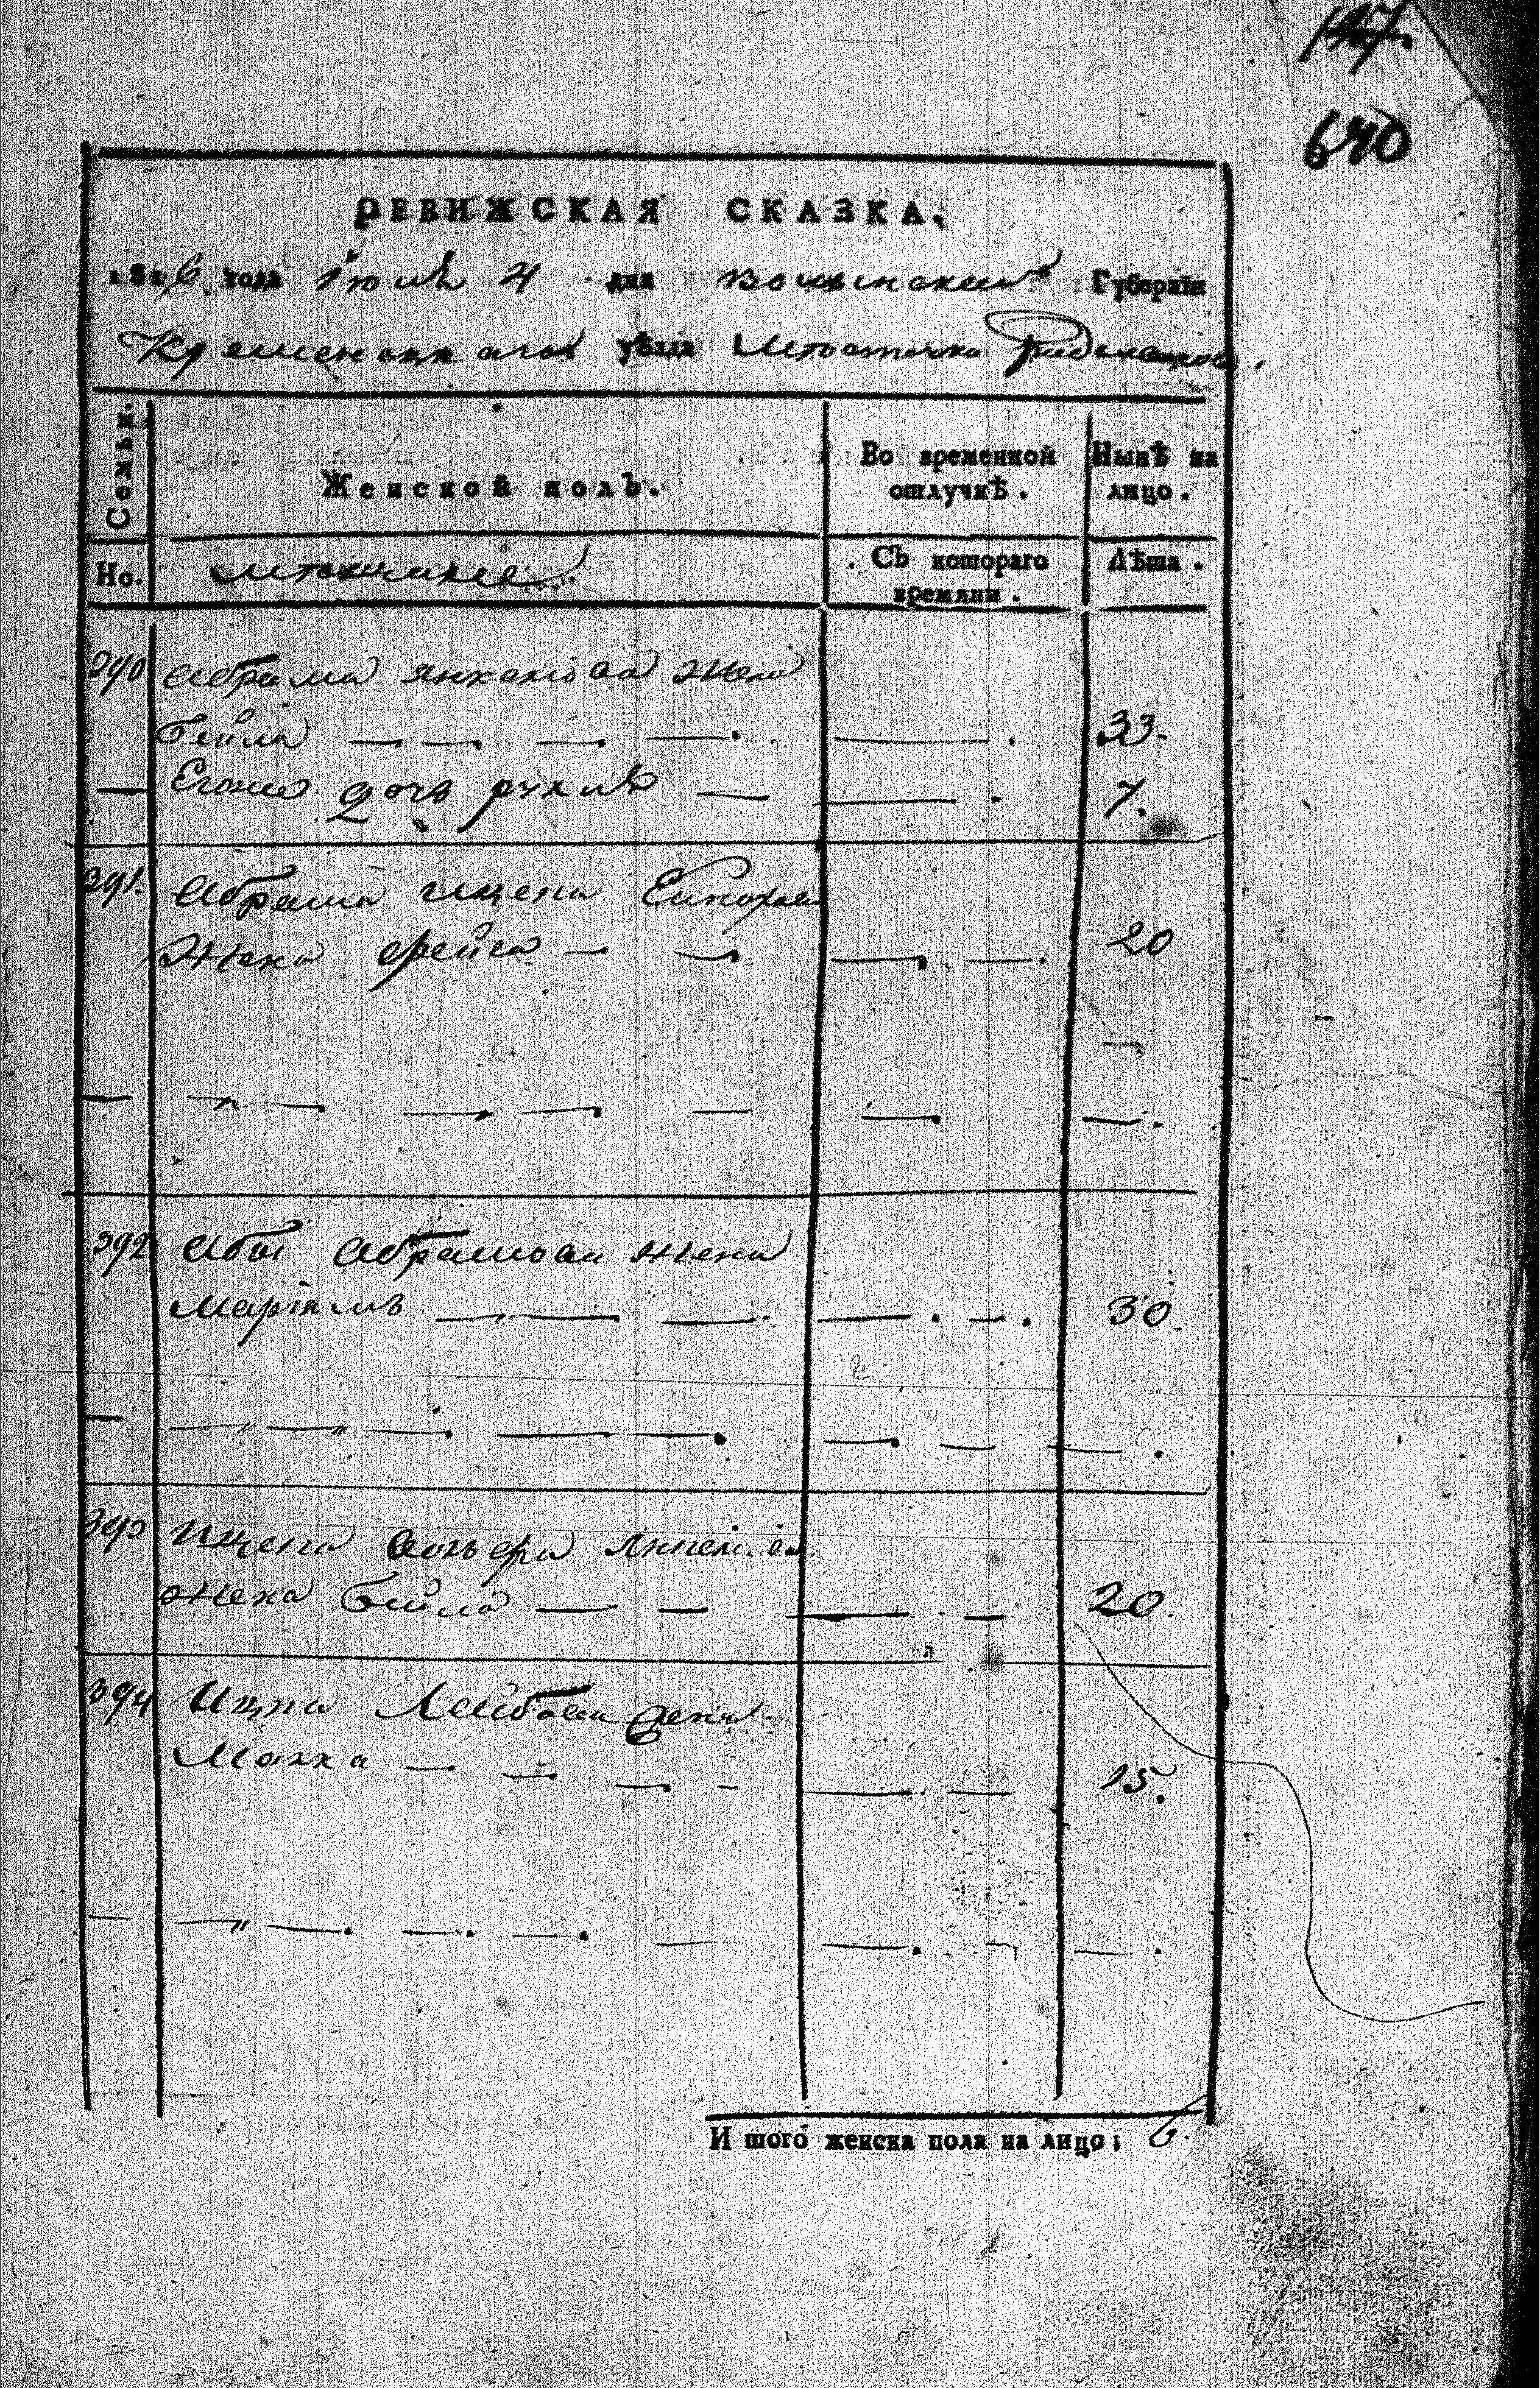 147.
640
РЕВИЖСКАЯ СКАЗКА,
1816 года Іюнѣ 4 дня Волынской Губерніи
Кременецкаго уѣзда Местечка
Семьи. Женской полъ. Во временной отлучкѣ. Нынѣ на лицо.
Но. Съ котораго времяни. Лѣта.
390 Абрама Янкелова жена
Бейла 33.
Егоже дочь рухль 7.
391. Абрама ицека
Жена фейга 20
392 Абы Абрамова жена
Маргаль 30
393 Ицека
жена Бейла 20.
394 Ицка Лейбова жена
Малка 15.
И того женска пола на лицо; 6.